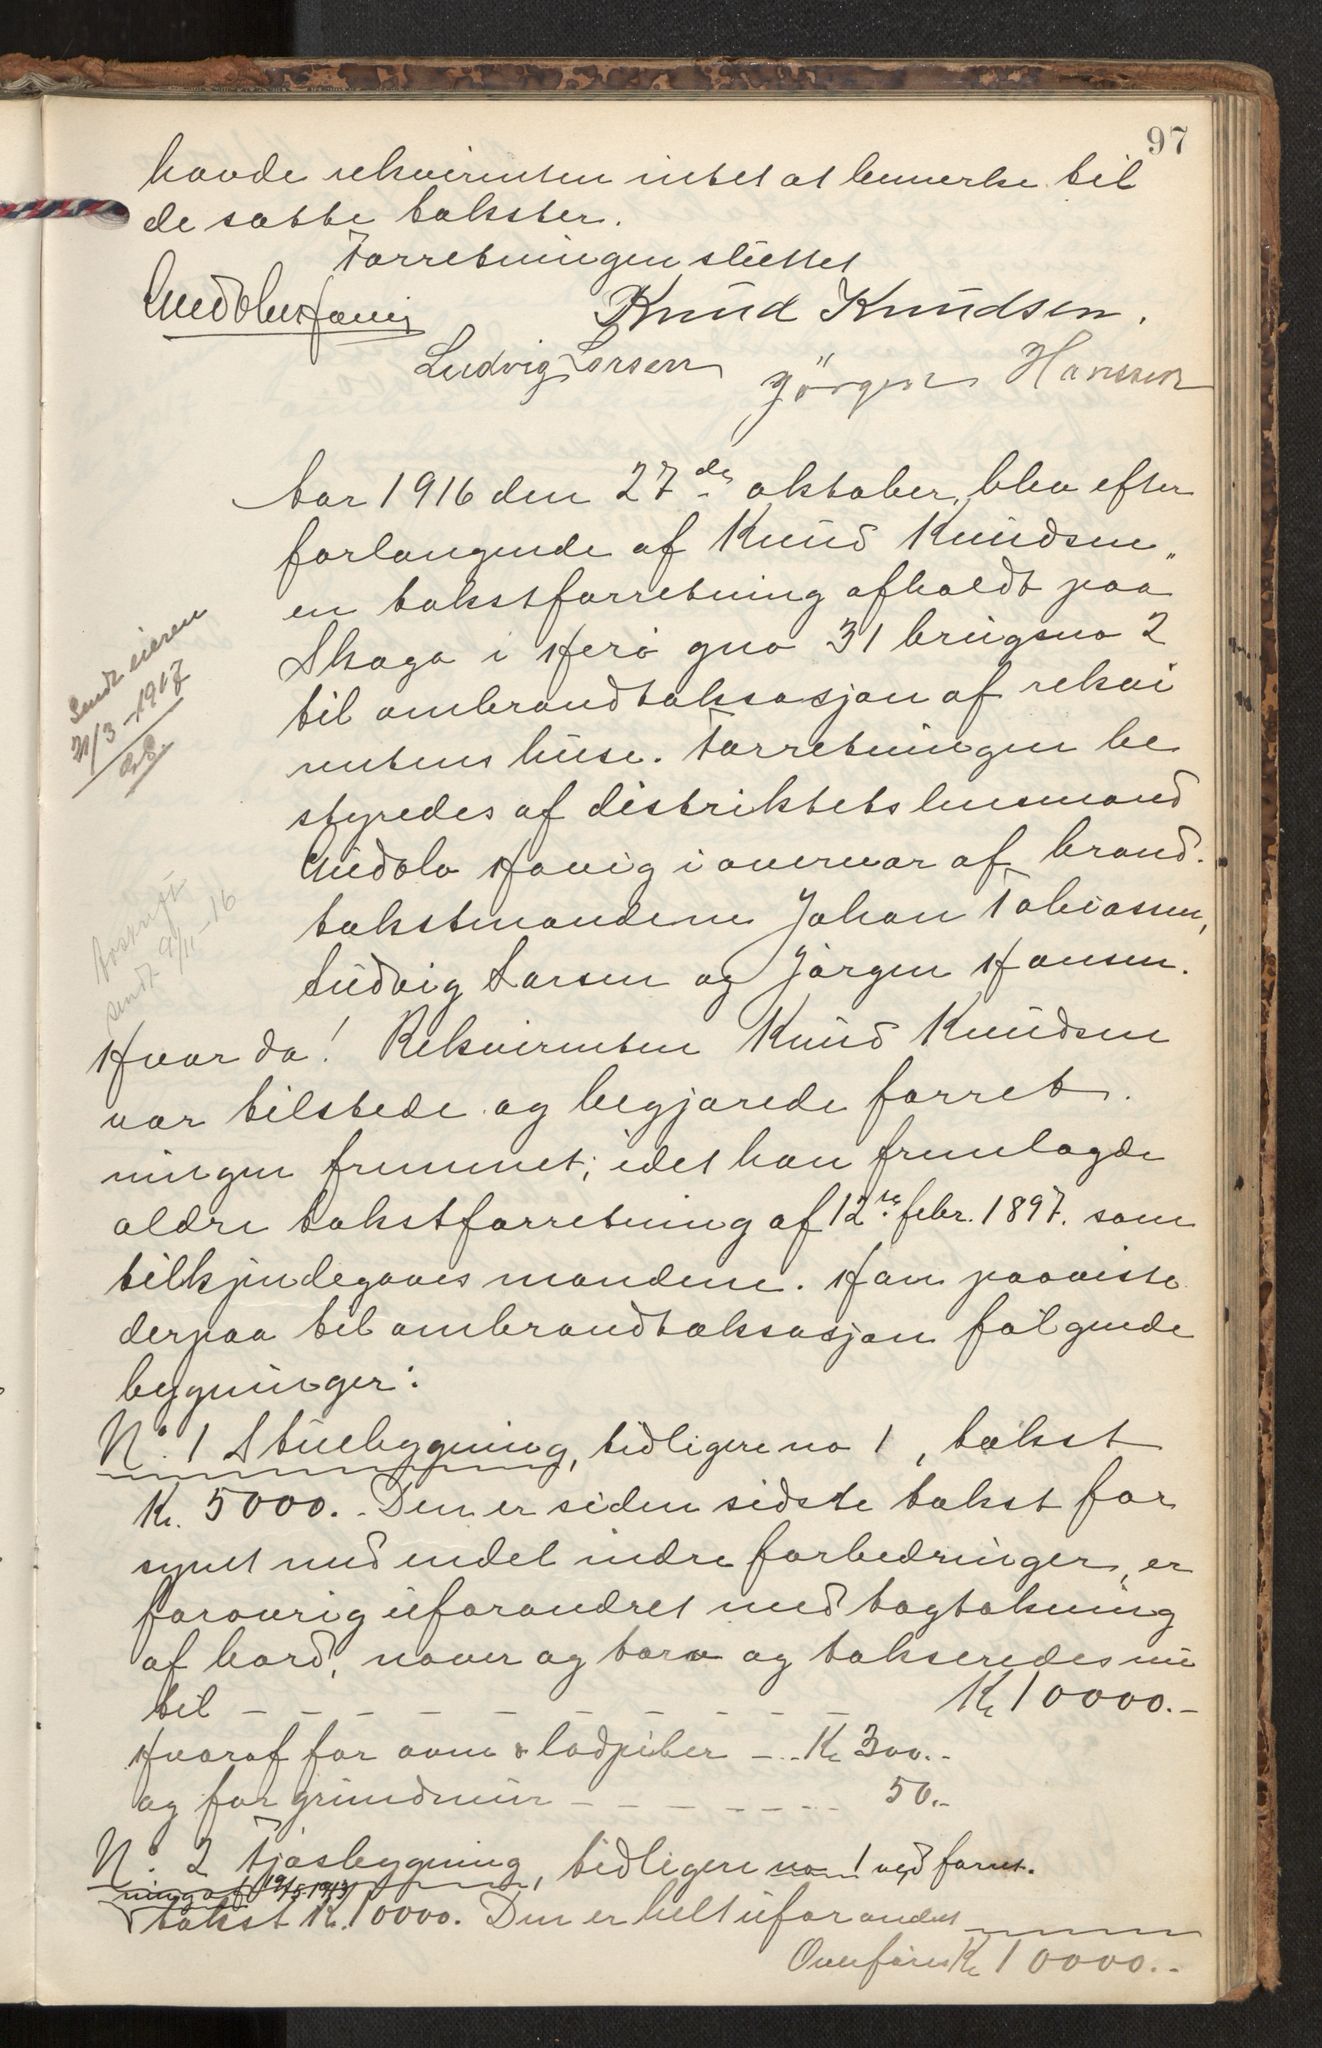 97
havde rekvirenten intet at bemerke til
de satte takster.
Forretningen sluttet
Gudolv Havig
Knud Knudsen.
Ludvig Larsen Jörgen Hanssen
Aar 1916 den 27de oktober, blev efter
forlangende af Knud Knudsen,
en takstforretning afholdt paa
Skaga i Herö gno 31 brugsno 2
til ombrandtaksasjon af rekvi
rentens huse. Forretningen be
styredes af distriktets lensmand
Gudolv Havig i overvær af brand-
takstmændene Johan Tobiassen,
Ludvig Larsen og Jørgen Hansen.
Sendt eieren
21/3-1917
Avskrift
sendt 9/11-16
Hvor da! Rekvirenten Knud Knudsen
var tilstede og begjærede forret-
ningen fremmet; idet han fremlagde
ældre takstforretning af 12te febr. 1897. som
tilkjendegaves mændene. Han paaviste
derpaa til ombrandtaksasjon følgende
bygninger:
No. 1 Stuebygning, tidligere no 1, takst
Kr. 5000.- Den er siden sidste takst for
synet med endel indre forbedringer, er
forøvrig uforandret med tagtækning
af bord, næver og torv og takseredes nu
til - - - - - - - - - - Kr 10000.-
Hvoraf for ovne & ladpiber - .. Kr 300.-
og for grundmur - - - - - - - - 50.-
No. 2 Fjøsbygning, tidligere no 1 ved forret-
ning af 19/5 1913
takst Kr. 10000. Den er helt uforandret
Overføres Kr 10000.-